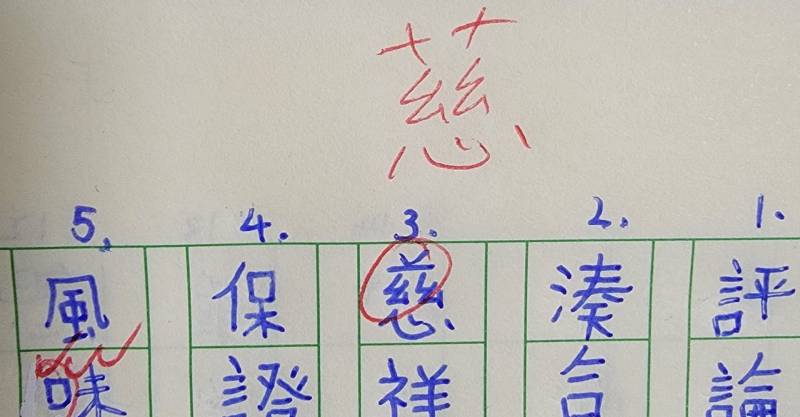 慈
1.
評論
2.
湊合
3.
慈祥
4.
保證
5.
風味